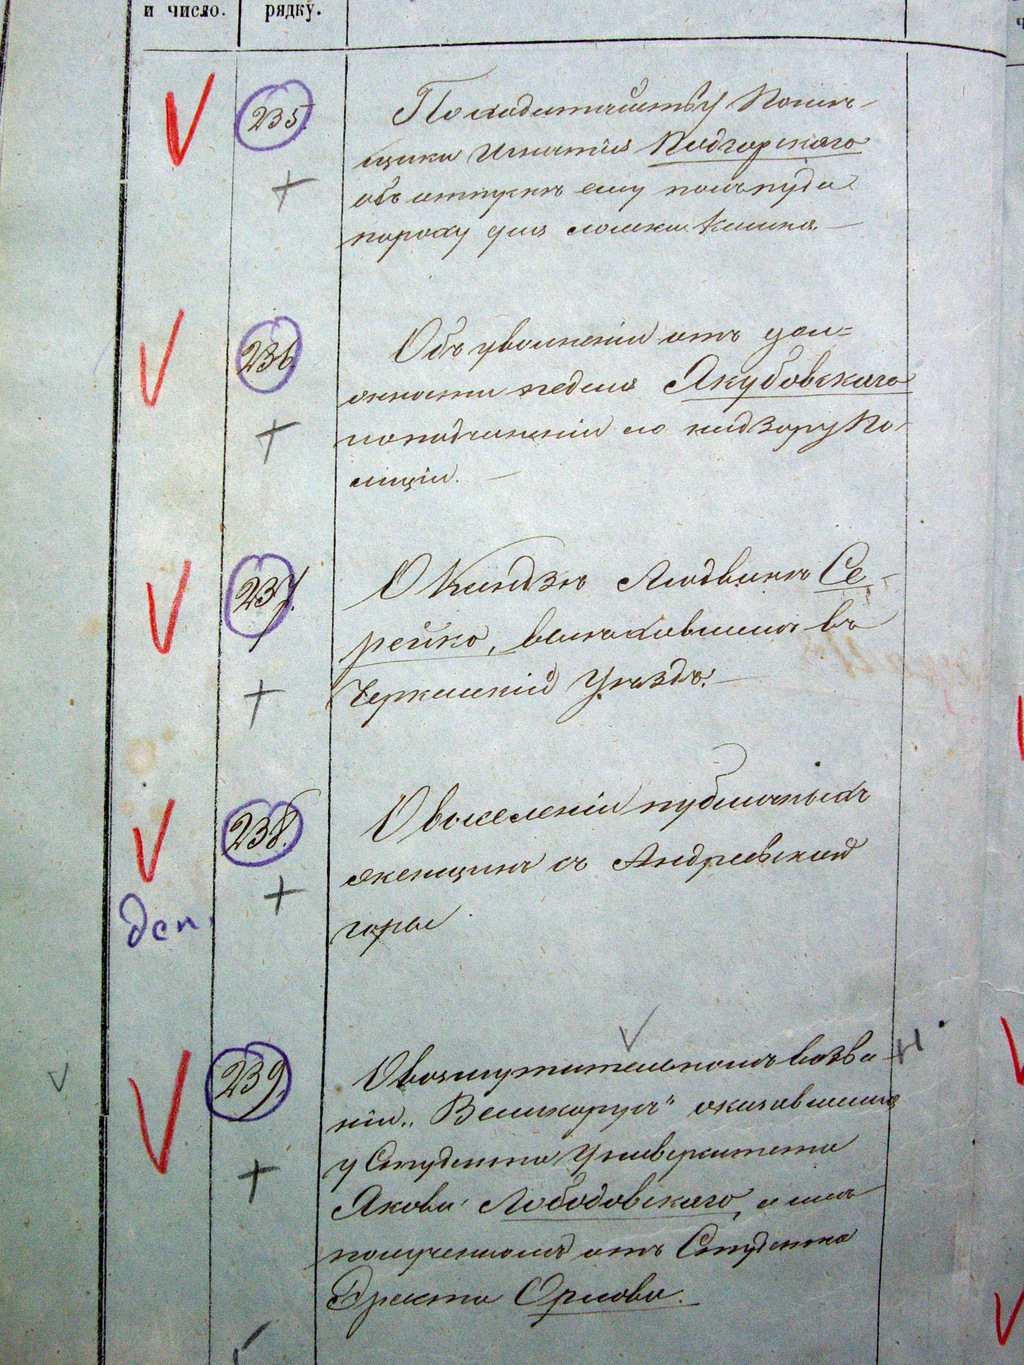 и число.
рядку.
235.
По ходатайству Помѣ-
щика Игнатія Подгорскаго
объ отпускѣ ему полъпуда
пороху для ломки камня.—
236.
Объ увольненіи отъ дол=
жности педеля Якубовскаго
и подчиненіи его надзору По-
лиціи.—
237.
О Ксиндзѣ Людвикѣ Се-
рейко, выѣхавшимъ въ
Черкаскій Уѣздъ.—
238.
О выселеніи публичныхъ
женщинъ съ Андреевской
горы
деп.
239.
О возмутительномъ воззва-
ніи „Великорусъ“ оказавшимся
у Студента Университета
Якова Лободовскаго, и имъ
полученномъ отъ Студента
Ореста Орлова.